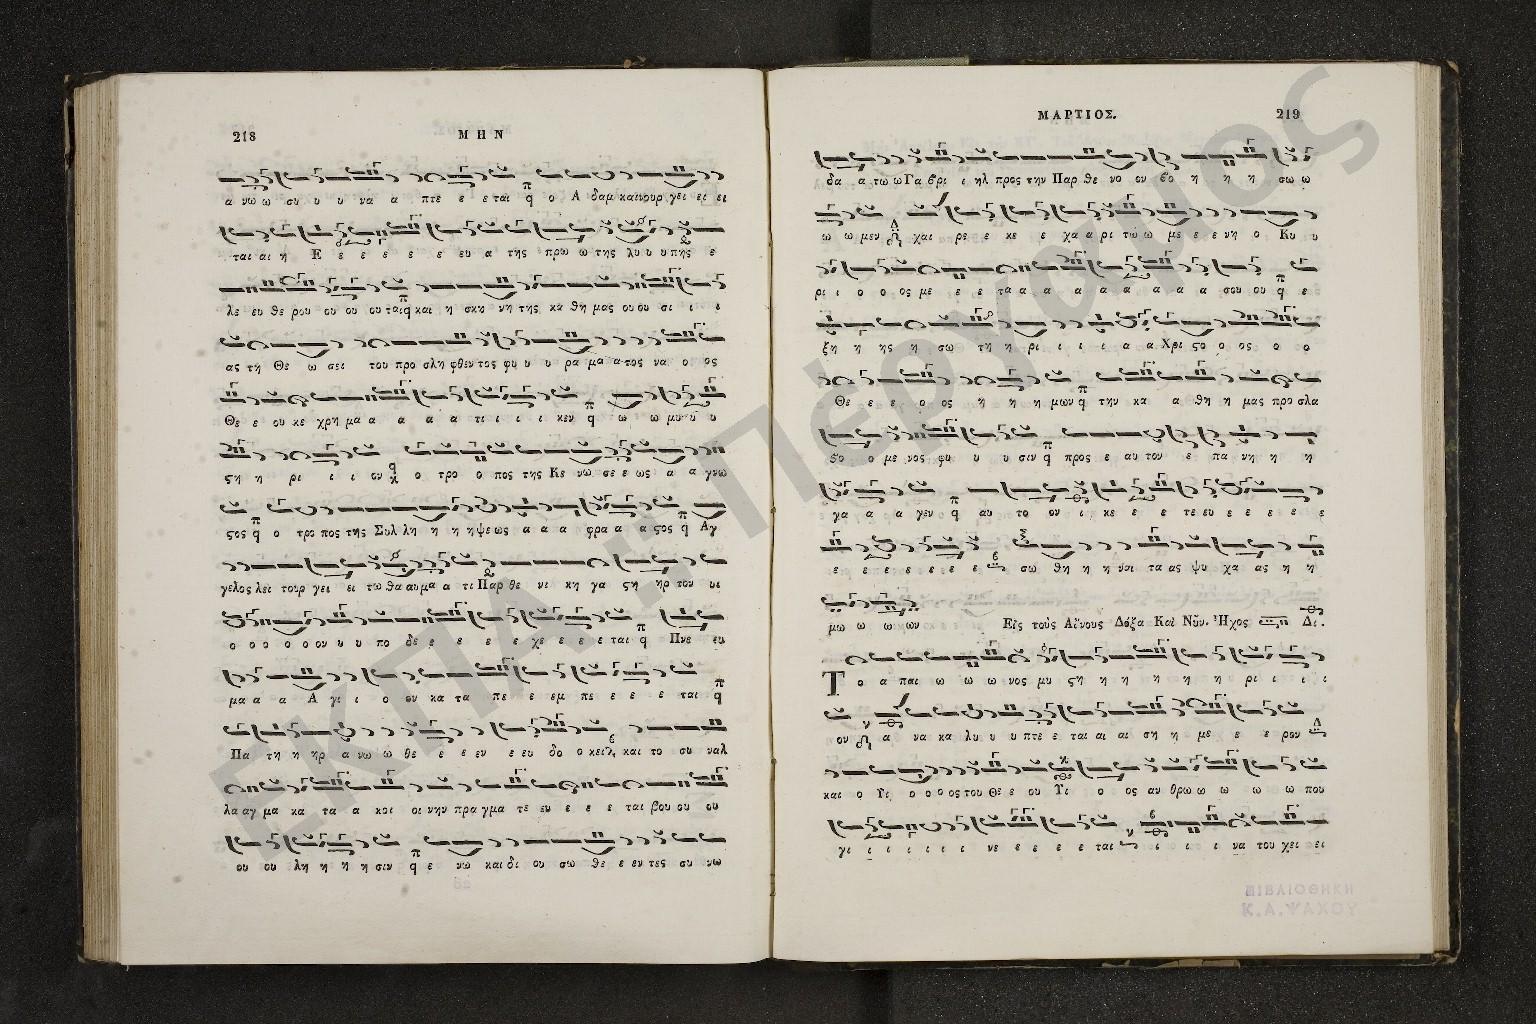 218
ΜΗΝ
α νω ω συ υ υ να α πτε ε ε εται ο Α δαμ καινουρ γει ει ει
ται αι η Ε ε ε ε ε ε ευ α της πρω ω της λυ υ υ πης ε
λε ευ θε ρου ου ου ου ου ταις και η σκη νη της κα θη μας ου ου σι ι ι
ας τη Θε ω σει του προ σλη φθεν τος φυ υ υ ρα μα α τος να ο ος
Θε ε ου κε χρη μα α α α α τι ι ι ι κεν ω ω μυ υ υ υ
ςη η ρι ι ι ον ο τρο ο πος της Κε νω σε ε ως α α γνω
ςος ο τρο πος της Συλ λη η η η ψε ως α α α φρα α α ςος Αγ
γελος λει τουρ γει ει τω θα αυμα α τι Παρ θε νι κη γα ςη ηρ τον υι
ο ο ο ο ο ον υ υ πο δε ε ε ε ε χε ε ε ε ται Πνε ευ
μα α α Α γι ι ο ον κα τα πε ε εμ πε ε ε ε ται
Πα τη η ηρ α νω ω θε ε ε εν ε ευ δο ο κει και το συ ναλ
λα αγ μα κα τα α κοι οι νην πρα γμα τε ευ ε ε ε ται βου ου ου
ου ου λη η η η σιν ε νω και δι ου σω θε ε εν τες συ νω
ΜΑΡΤΙΟΣ.
219
δα α τω ω Γα βρι ι ηλ προς την Παρ θε νο ον βο η η η σω ω
ω ω μεν χαι ρε ε κε ε χα α ρι τω ω με ε ε νη ο Κυ υ
ρι ι ο ο ος με ε ε τα α α α α α α α α σου ου ε
ξη η ης η σω τη η ρι ι ι ι α α Χρι ςο ο ος ο ο
Θε ε ε ο ος η η η μων την κα α θη η μας προ σλα
βο ο με νος φυ υ υ σιν προς ε αυ τον ε πα νη η η
γα α α γεν αυ το ον ι κε ε ε τε ευ ε ε ε ε ε
ε ε ε ε ε ε ε σω θη η η ναι τα ας ψυ χα ας η η
μω ω ω ων Εἰς τοὺς Αἴνους Δόξα Καὶ Νῦν. Ἦχος Δι.
Το α παι ω ω ω νος μυ ςη η η η η η η ρι ι ι ι
ον α να κα λυ υ υ πτε ε ται αι αι ση η με ε ε ρον
και ο Υι ο ο ο ος του Θε ε ου Υι ο ος αν θρω ω ω ω ω που
γι ι ι ι ι ι νε ε ε ε ε ται ι ι ι να του χει ει
ΒΙΒΛΙΟΘΗΚΗ
Κ.Α.ΨΑΧΟΥ